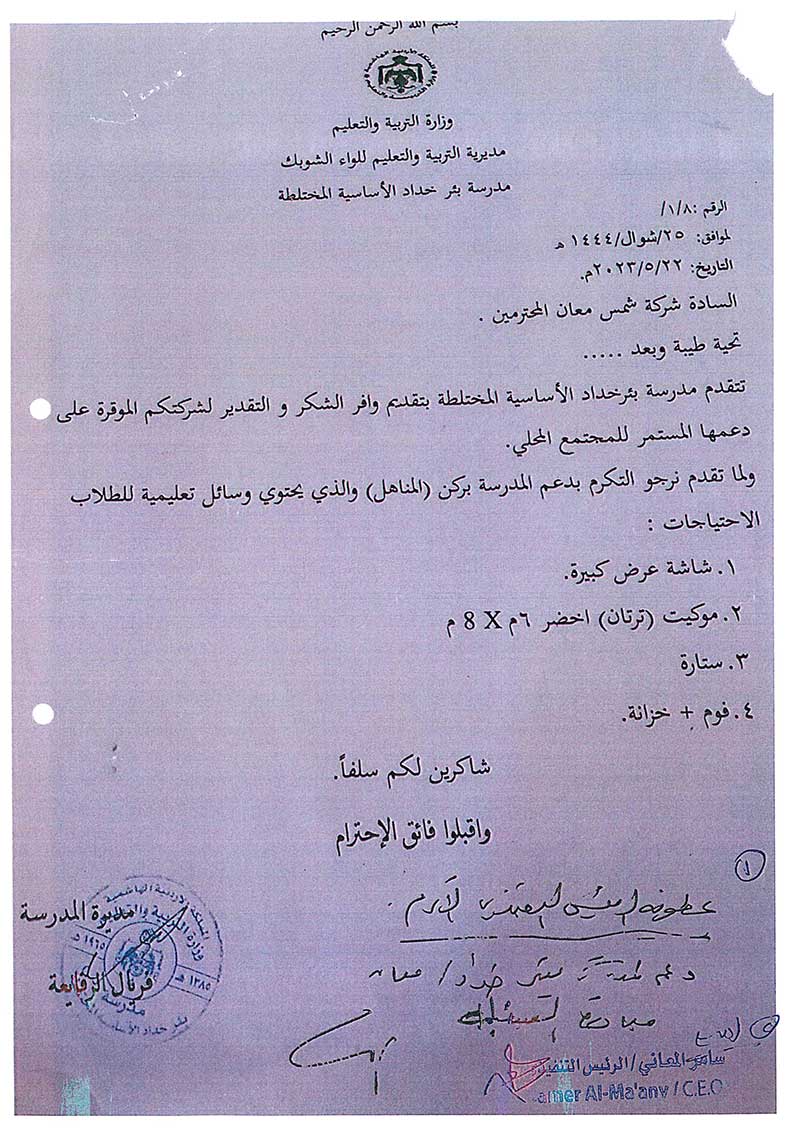 بسم الله الرحمن الرحيم
وزارة التربية والتعليم
مديرية التربية والتعليم للواء الشوبك
مدرسة بئر خداد الأساسية المختلطة
الرقم :١/٨/
لموافق: ٢٥/شوال/١٤٤٤ هـ
التاريخ: ٢٠٢٣/٥/٢٢م.
السادة شركة شمس معان المحترمين .
تحية طيبة وبعد .....
تتقدم مدرسة بئرخداد الأساسية المختلطة بتقديم وافر الشكر و التقدير لشركتكم الموقرة على
دعمها المستمر للمجتمع المحلي.
ولما تقدم نرجو التكرم بدعم المدرسة بركن (المناهل) والذي يحتوي وسائل تعليمية للطلاب
الاحتياجات :
١. شاشة عرض كبيرة.
٢. موكيت (ترتان) اخضر ٦م X 8 م
٣. ستارة
٤. فوم + خزانة.
شاكرين لكم سلفاً.
واقبلوا فائق الإحترام
مديرة المدرسة
فريال الرفايعة
١
عطوفة الرئيس التنفيذي الأكرم .
دعم بئر خداد / معان
سامر المعاني / الرئيس التنفيذ
amer Al-Ma'any / C.E.O